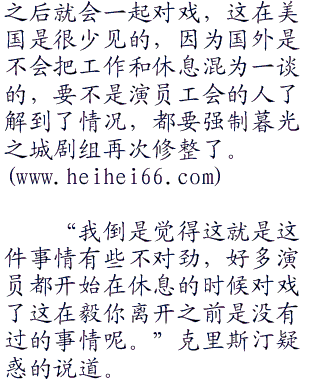 之后就会一起对戏，这在美
国是很少见的，因为国外是
不会把工作和休息混为一谈
的，要不是演员工会的人了
解到了情况，都要强制暮光
之城剧组再次修整了。
(www.heihei66.com)
“我倒是觉得这就是这
件事情有些不对劲，好多演
员都开始在休息的时候对戏
了这在毅你离开之前是没有
过的事情呢。”克里斯汀疑
惑的说道。